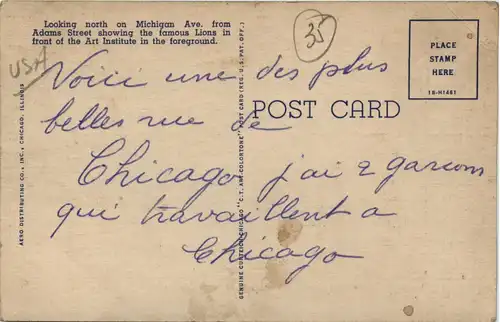 Looking north on Michigan Ave. from
Adams Street showing the famous Lions in
front of the Art Institute in the foreground.
USA
35
PLACE
STAMP
HERE
POST CARD
Voici une des plus
belles rue de
Chicago j'ai 2 garcons
qui travaillent a
Chicago
AERO DISTRIBUTING CO., INC., CHICAGO, ILLINOIS
GENUINE CURTEICH-CHICAGO "C.T. ART-COLORTONE" POST CARD (REG. U.S. PAT. OFF.)